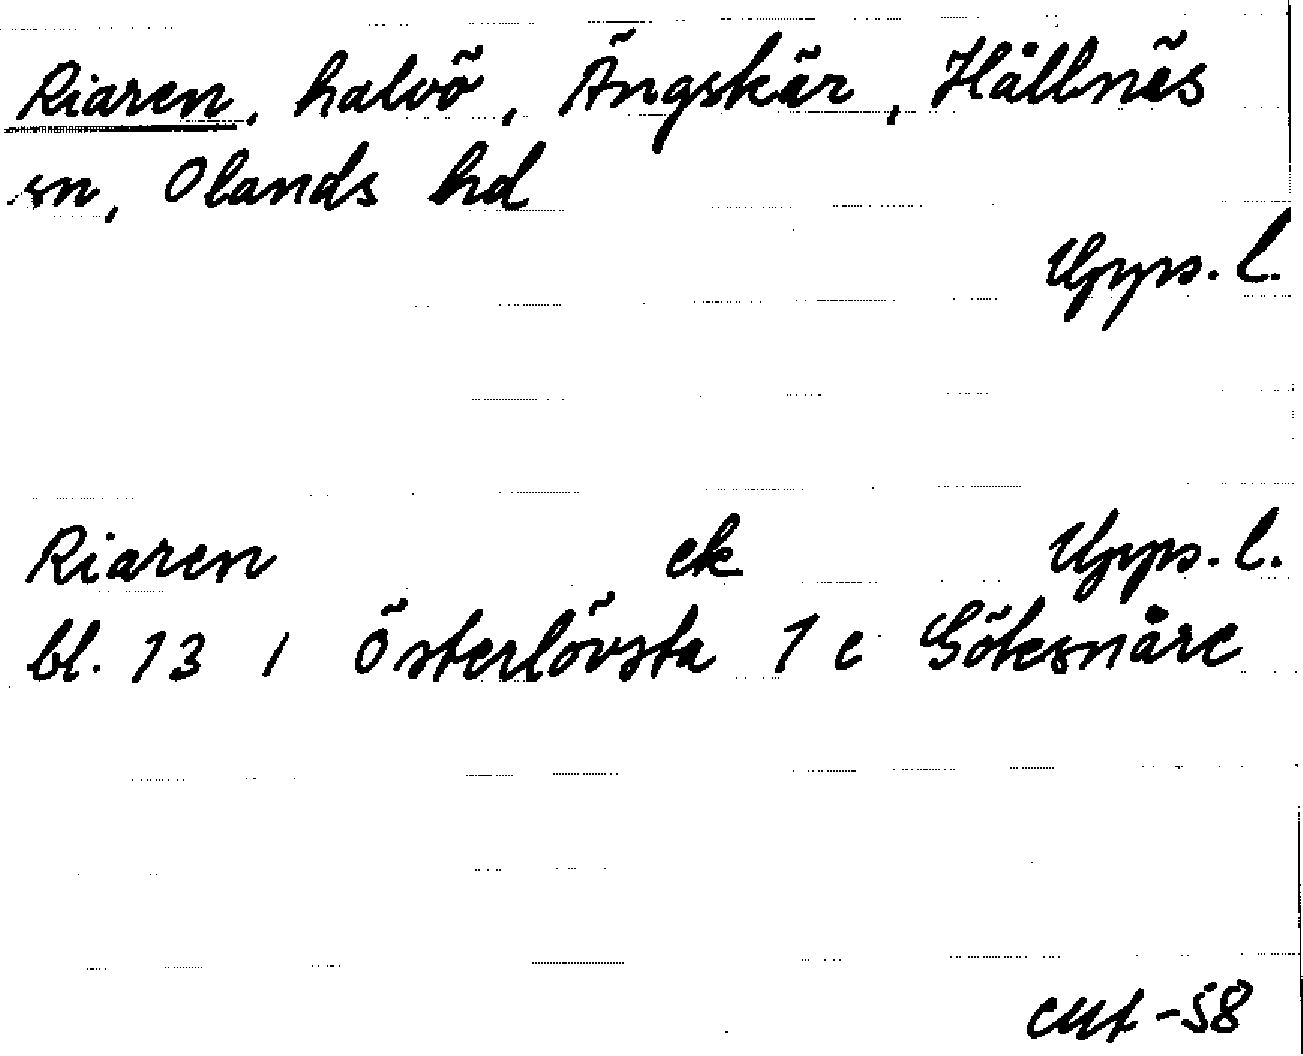 Riaren, halvö, Ängskär, Hållnäs
sn, Olands hd
Upps. l.
Riaren ek Upps. l.
bl. 13 1 Österlövsta 1 c Götesnåre
-58